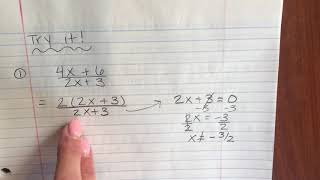 Try it!
① 4x + 6
2x + 3
= 2(2x + 3)
2x + 3
→ 2x + 3 = 0
-3 -3
2x = -3
2 2
x ≠ -3/2